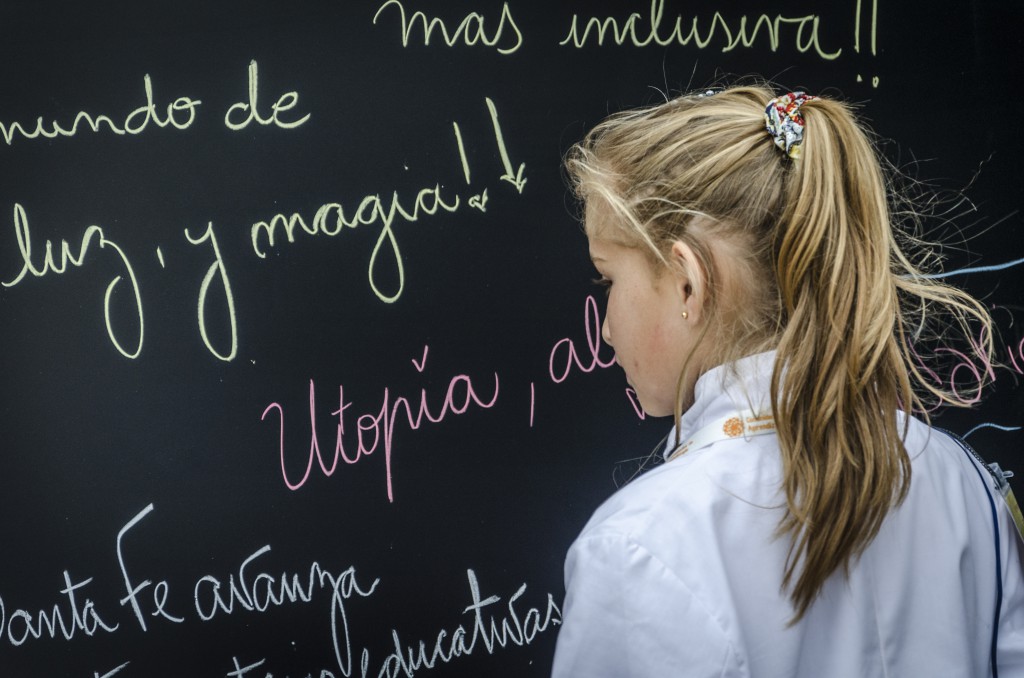 mas inclusiva!!
mundo de
luz, y magia!!
Utopía, al
Santa Fe avanza
educativas